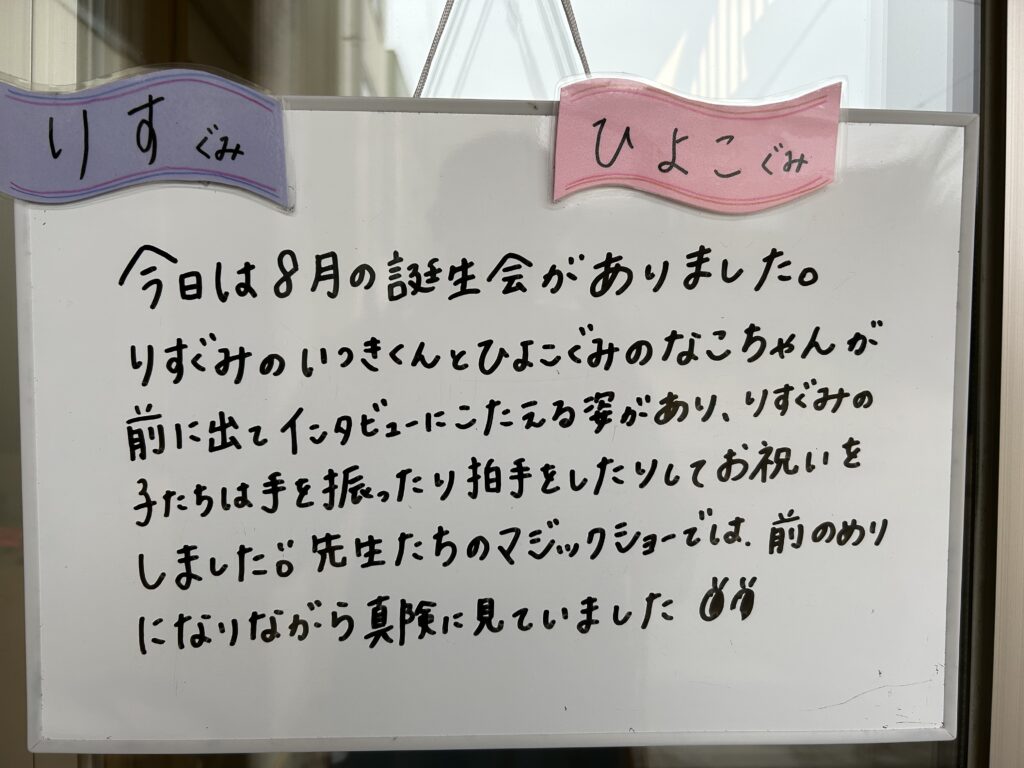 りすぐみ
ひよこぐみ
今日は8月の誕生会がありました。
りすぐみのいつきくんとひよこぐみのなこちゃんが
前に出てインタビューにこたえる姿があり、りすぐみの
子たちは手を振ったり拍手をしたりしてお祝いを
しました。先生たちのマジックショーでは、前のめり
になりながら真険に見ていました